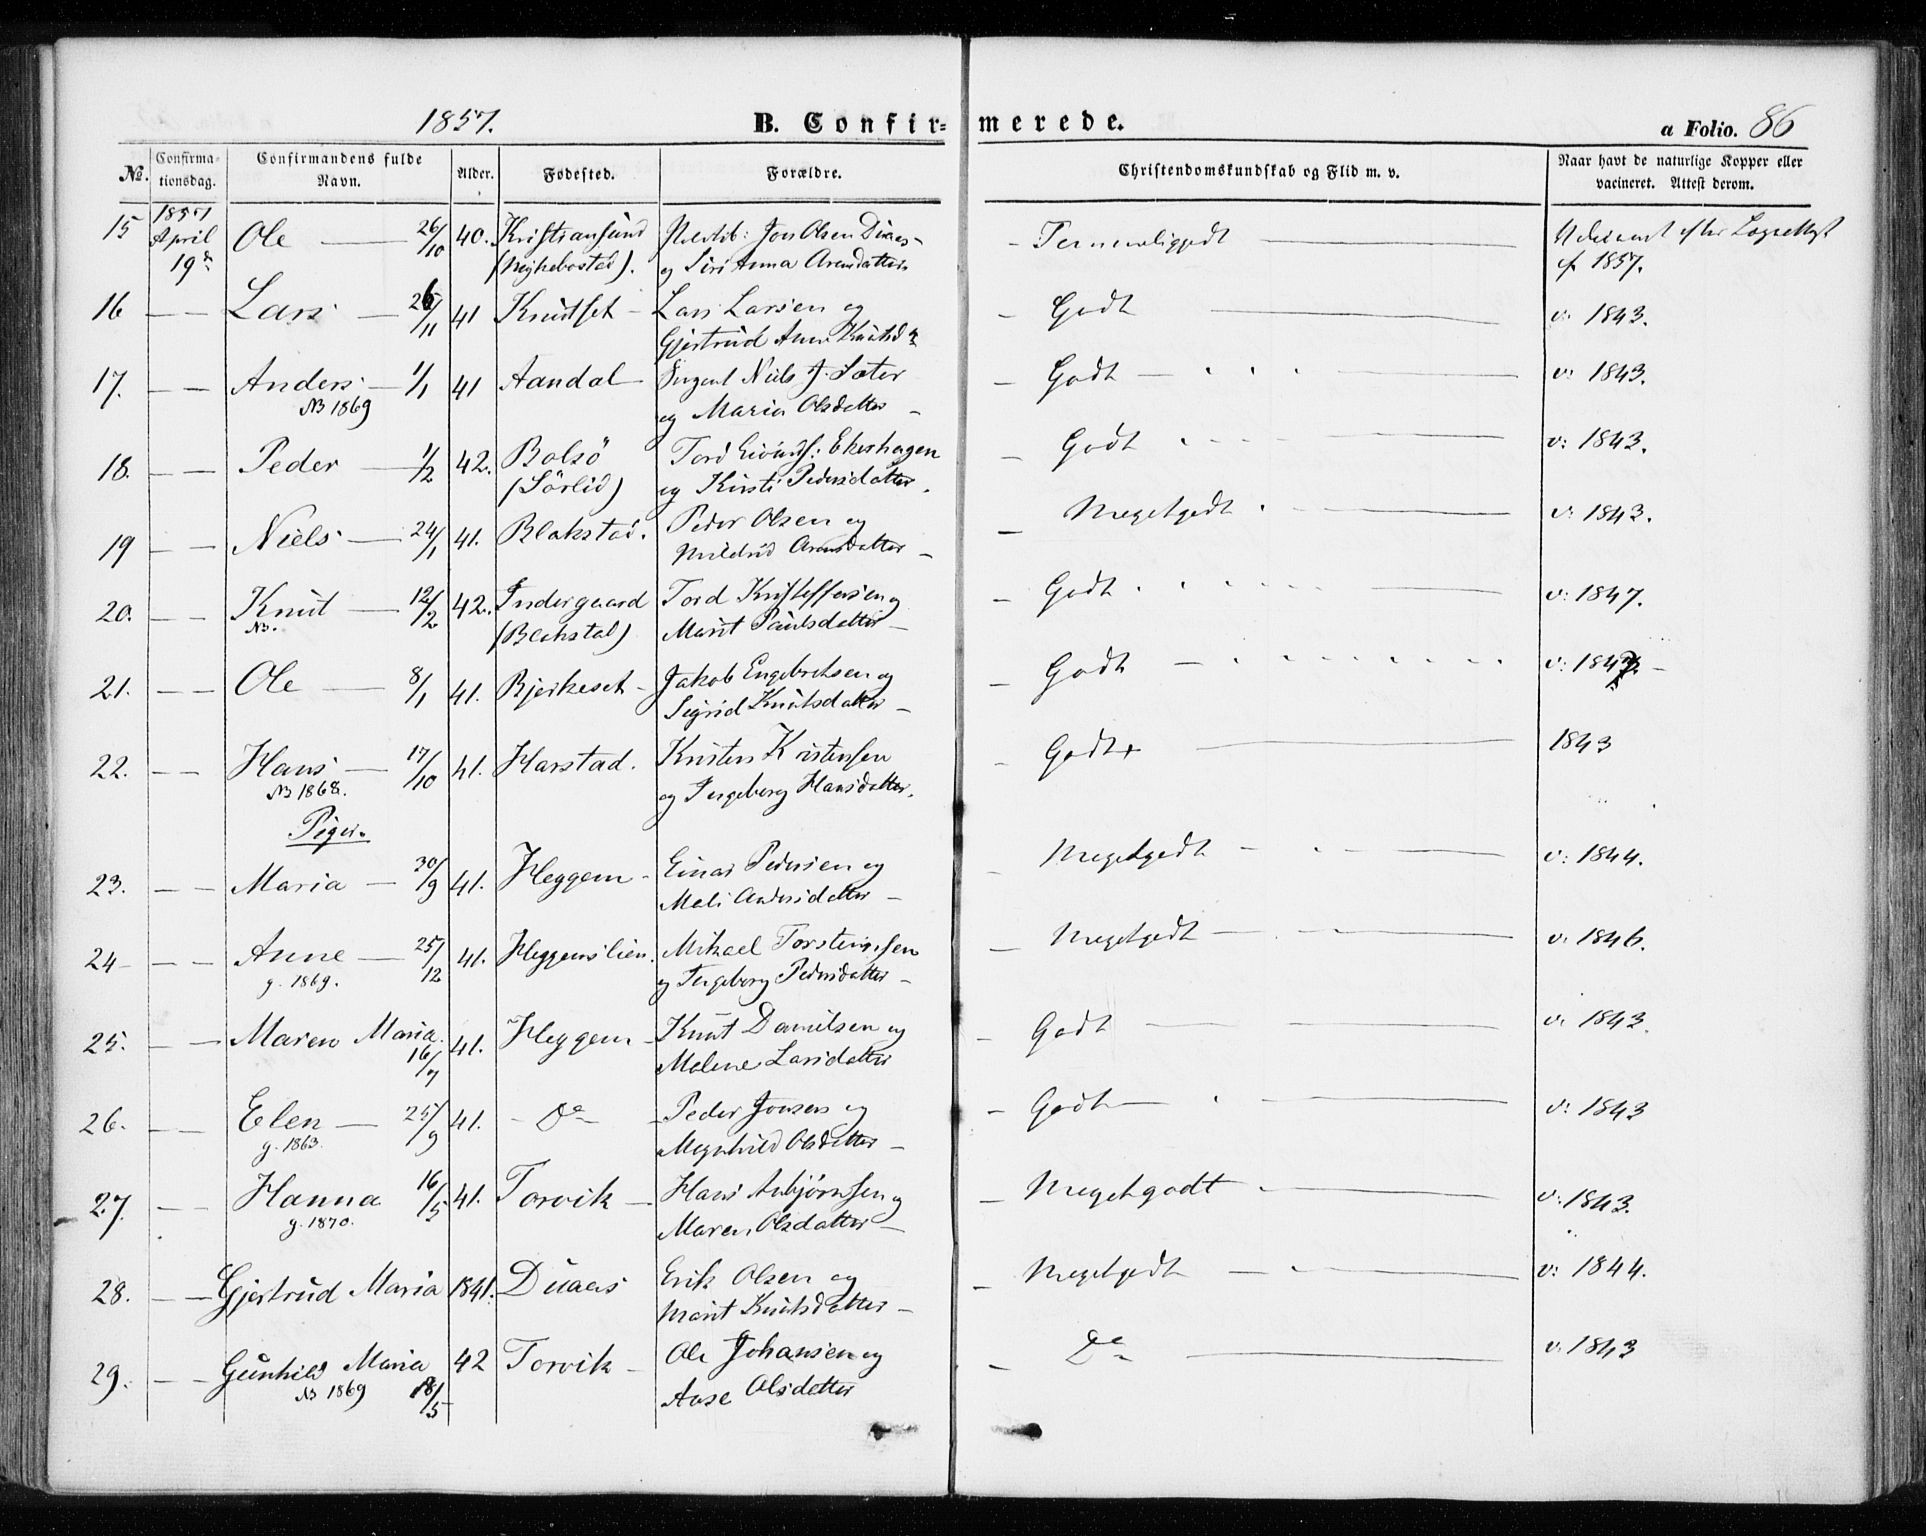 1857.
B. Confirmerede.
a Folio. 86
No. Confirmationsdag. Confirmandens fulde Navn. Alder. Fødested. Forældre. Christendomskundskab og Flid m. v. Naar havt de naturlige Kopper eller vacineret. Attest derom.
15 1857 April 19de Ole — 26/10 40. Kristiansund Jon Olsen Duaas – Temmeliggodt
og Siri Anna Arensdatter 1857.
16 — — Lars — 26/11 41 Knudset – Lars Larsen og – Godt v: 1843.
Gjertrud Anne Knutsdr
17. — — Anders — 1/1 41 Aandal – Sergent Niels J. Sæter – Godt v: 1843.
NB 1869 og Maria Olsdatter –
18. — — Peder — 1/2 42. Bolsö Tord Eivinds: Ekershagen – Godt v: 1843.
(Sörlid) og Kirsti Pedersdatter.
19 — — Niels — 24/1 41. Blakstad. Peder Olsen og – Megetgodt v: 1843.
Mildrid Arensdatter –
20. — — Knut — 12/2 42. Indergaard Tord Kristoffersen og – Godt v: 1847.
NB. (Blakstad) Marit Paulsdatter –
21. — — Ole — 8/1 41. Bjerkeset – Jakob Engebretsen og – Godt v: 1847. –
Sigrid Knutsdatter –
22. — — Hans — 17/10 41. Harstad. Kristen Kristensen – Godt + 1843
NB 1868. og Ingeborg Hansdatter.
Piger.
23. — — Maria — 30/9 41. Heggem – Einar Pedersen og – Megetgodt v: 1844.
Mali Andersdatter –
24 — — Anne — 25/12 41. Heggemslien. Mikael Torsteinsen – Megetgodt v: 1846.
g. 1869. og Ingeborg Pedersdatter –
25. — — Maren Maria 16/7 41. Heggem – Knut Danielsen og – Godt v: 1843.
Malene Larsdatter
26. — — Elen — 25/9 41. – Do – Peder Jonsen og – Godt v: 1843
g. 1863. Magnhild Olsdatter –
27. — — Hanna 16/5 41. Torvik – Hans Asbjørnsen og – Megetgodt v: 1843.
g. 1870. Maren Olsdatter –
28. — — Gjertrud Maria 1841. Duaas Erik Olsen og – Megetgodt v: 1844.
Marit Knutsdatter –
29. — — Gunhild Maria 42 Torvik – Ole Johansen og – Do v: 1843
NB 1869 18/5 Aase Olsdatter